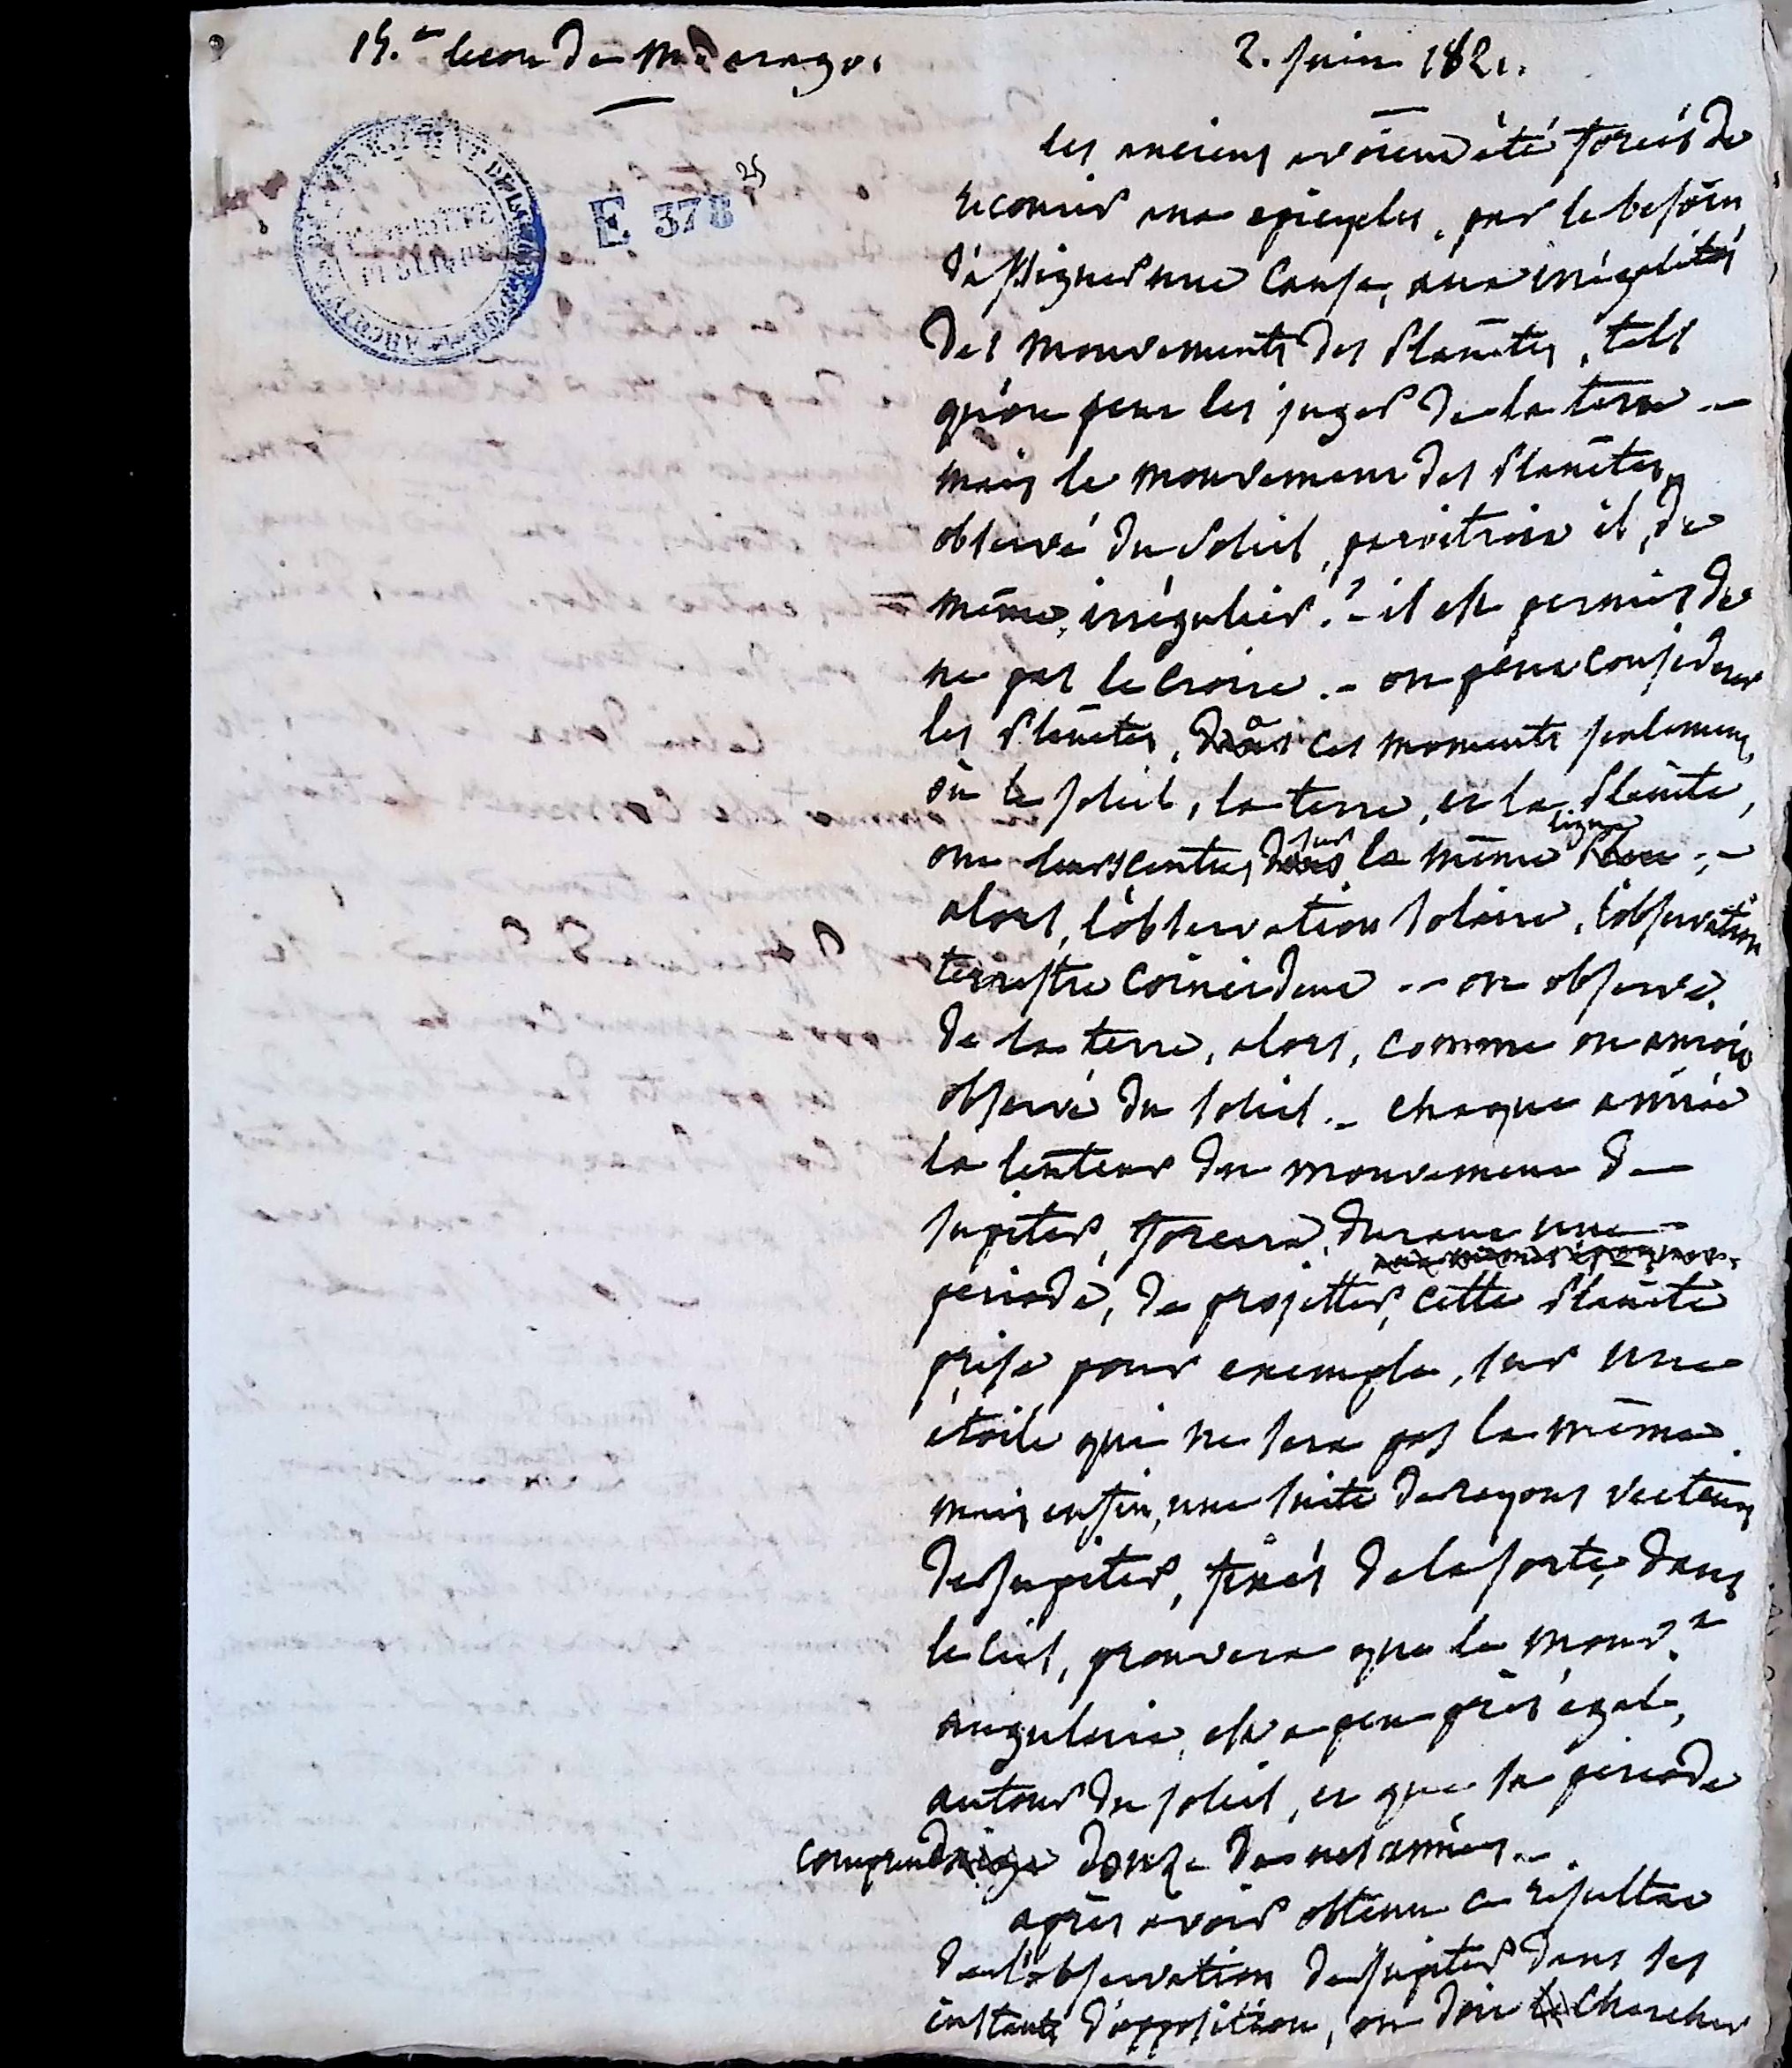 15.e lecon de Mr. arago.
2. juin 1821.
E 378
25
les anciens avoient été forcés de
recourir aux epicycles, par le besoin
d'assigner une cause, aux inégalités
des mouvements des Planètes, tels
qu'on peut les juger de la terre --
mais le mouvement des Planètes,
observé du soleil, paroitroit il, de
même, irrégulier? - il est permis de
ne pas le croire. - on peut considerer
les Planètes, dans ces moments seulement,
où le soleil, la terre, et la Planète,
ont leurs centres sur la même ligne ; -
alors, l'observation solaire, l'observation
terrestre coincident -- on observe,
de la terre, alors, comme on auroit
observé du soleil. - chaque année
la lenteur du mouvement de
jupiter, forcera, durant une
periode, de projetter, cette Planète
prise pour exemple, sur une
étoile qui ne sera pas la même.
mais enfin, une suite de rayons vecteurs
de jupiter, fixés de la sorte, dans
le ciel, prouvera que le mouv.t
angulaire, est a peu près égal,
autour du soleil, et que sa periode
comprend douze de nos années. -
après avoir obtenu ce résultat
de l'observation de jupiter dans ses
instants d'opposition, on doit chercher